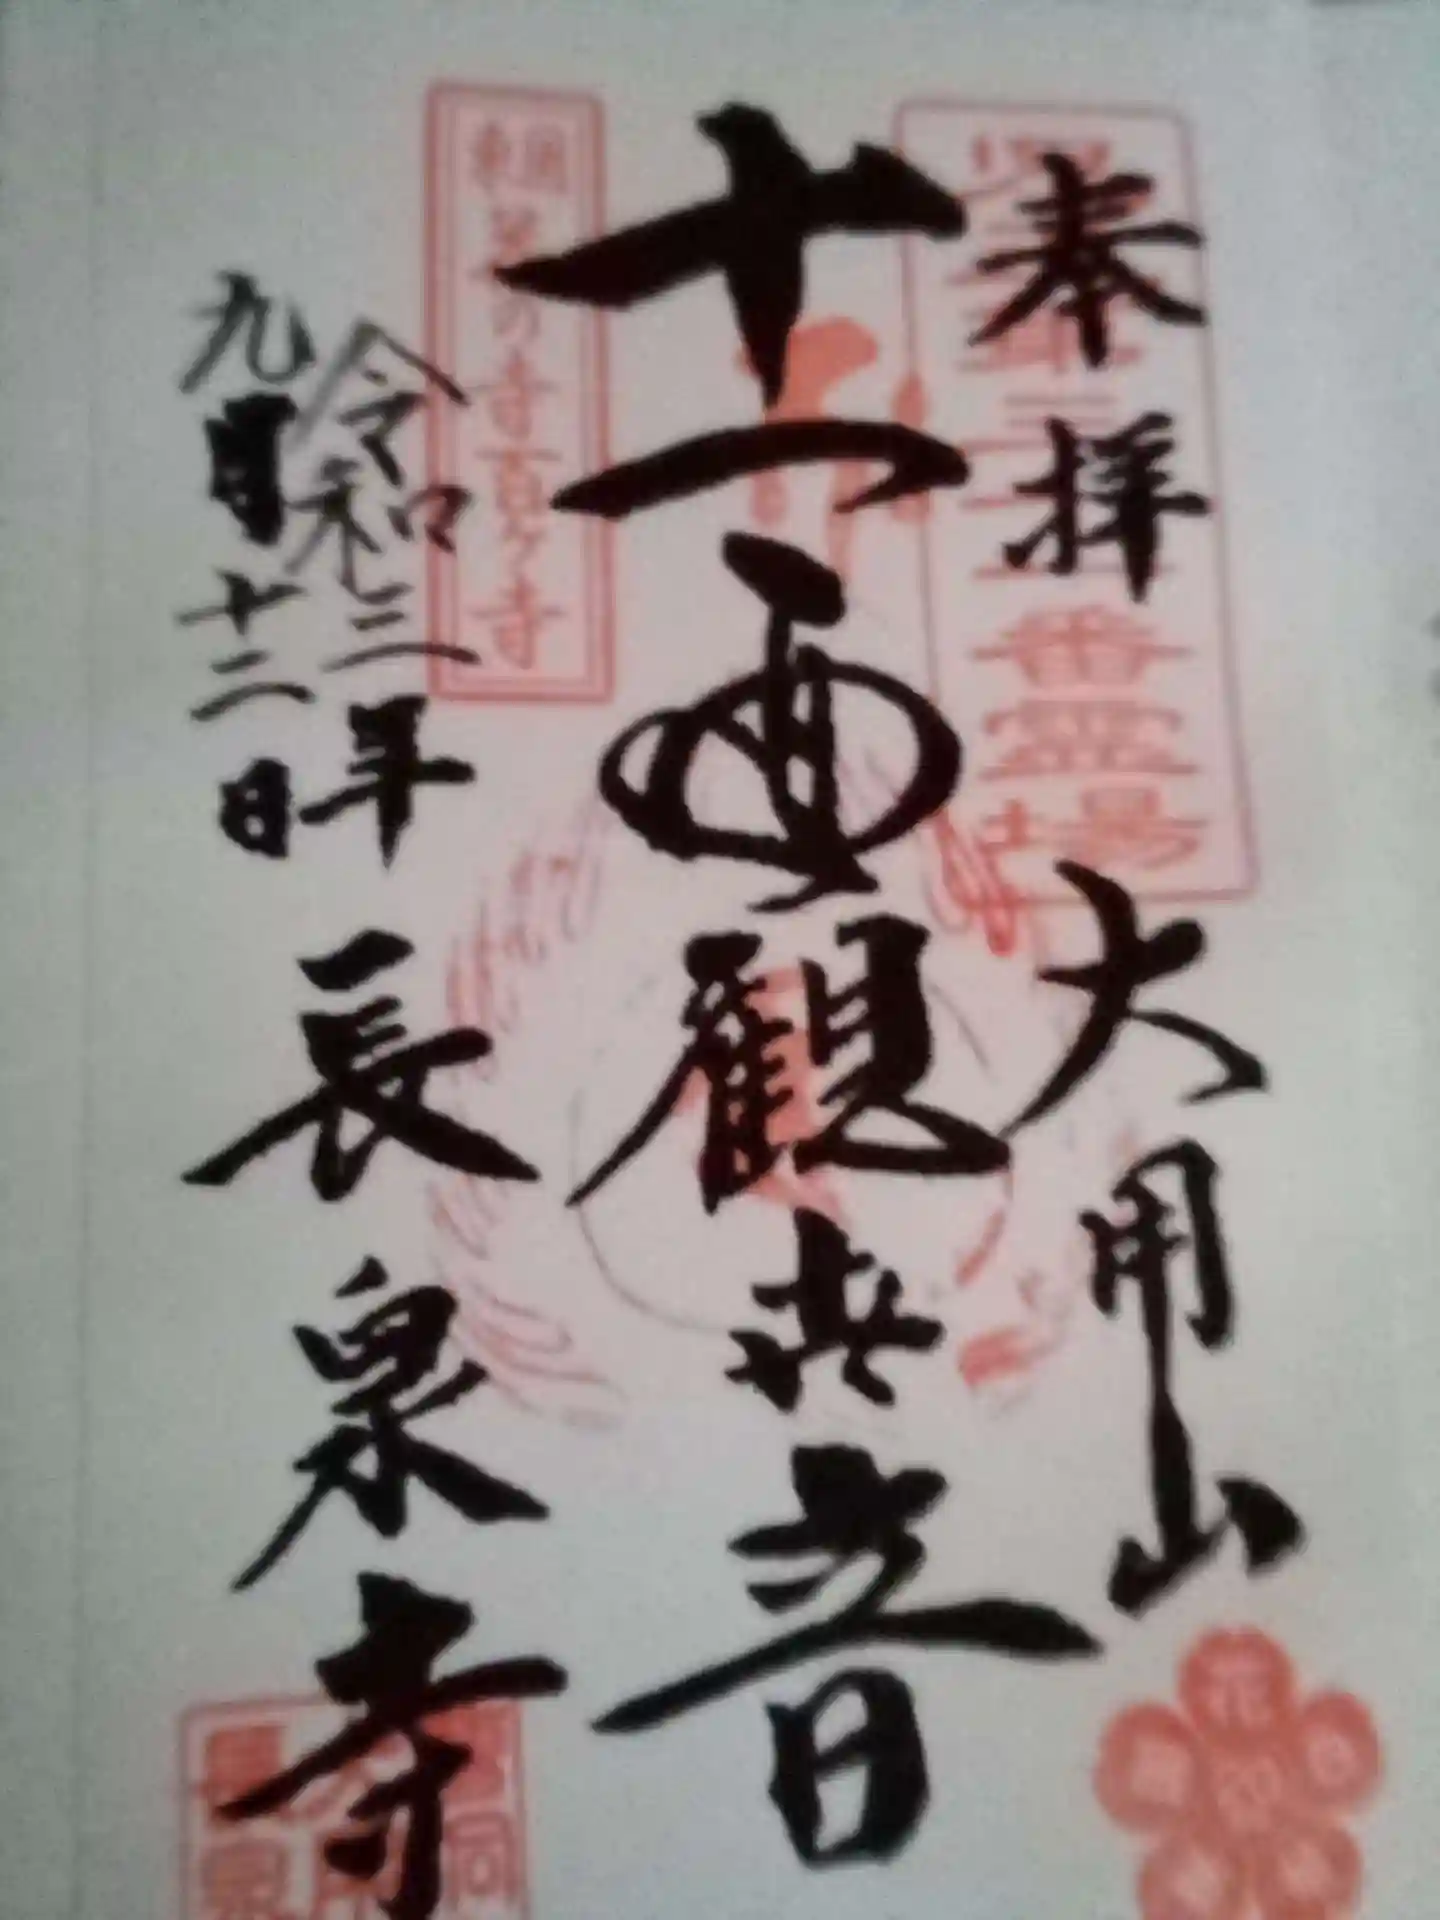 奉拝
大用山
十一面観世音
令和三年
九月十二日
長泉寺
番霊場
寺百ヶ寺